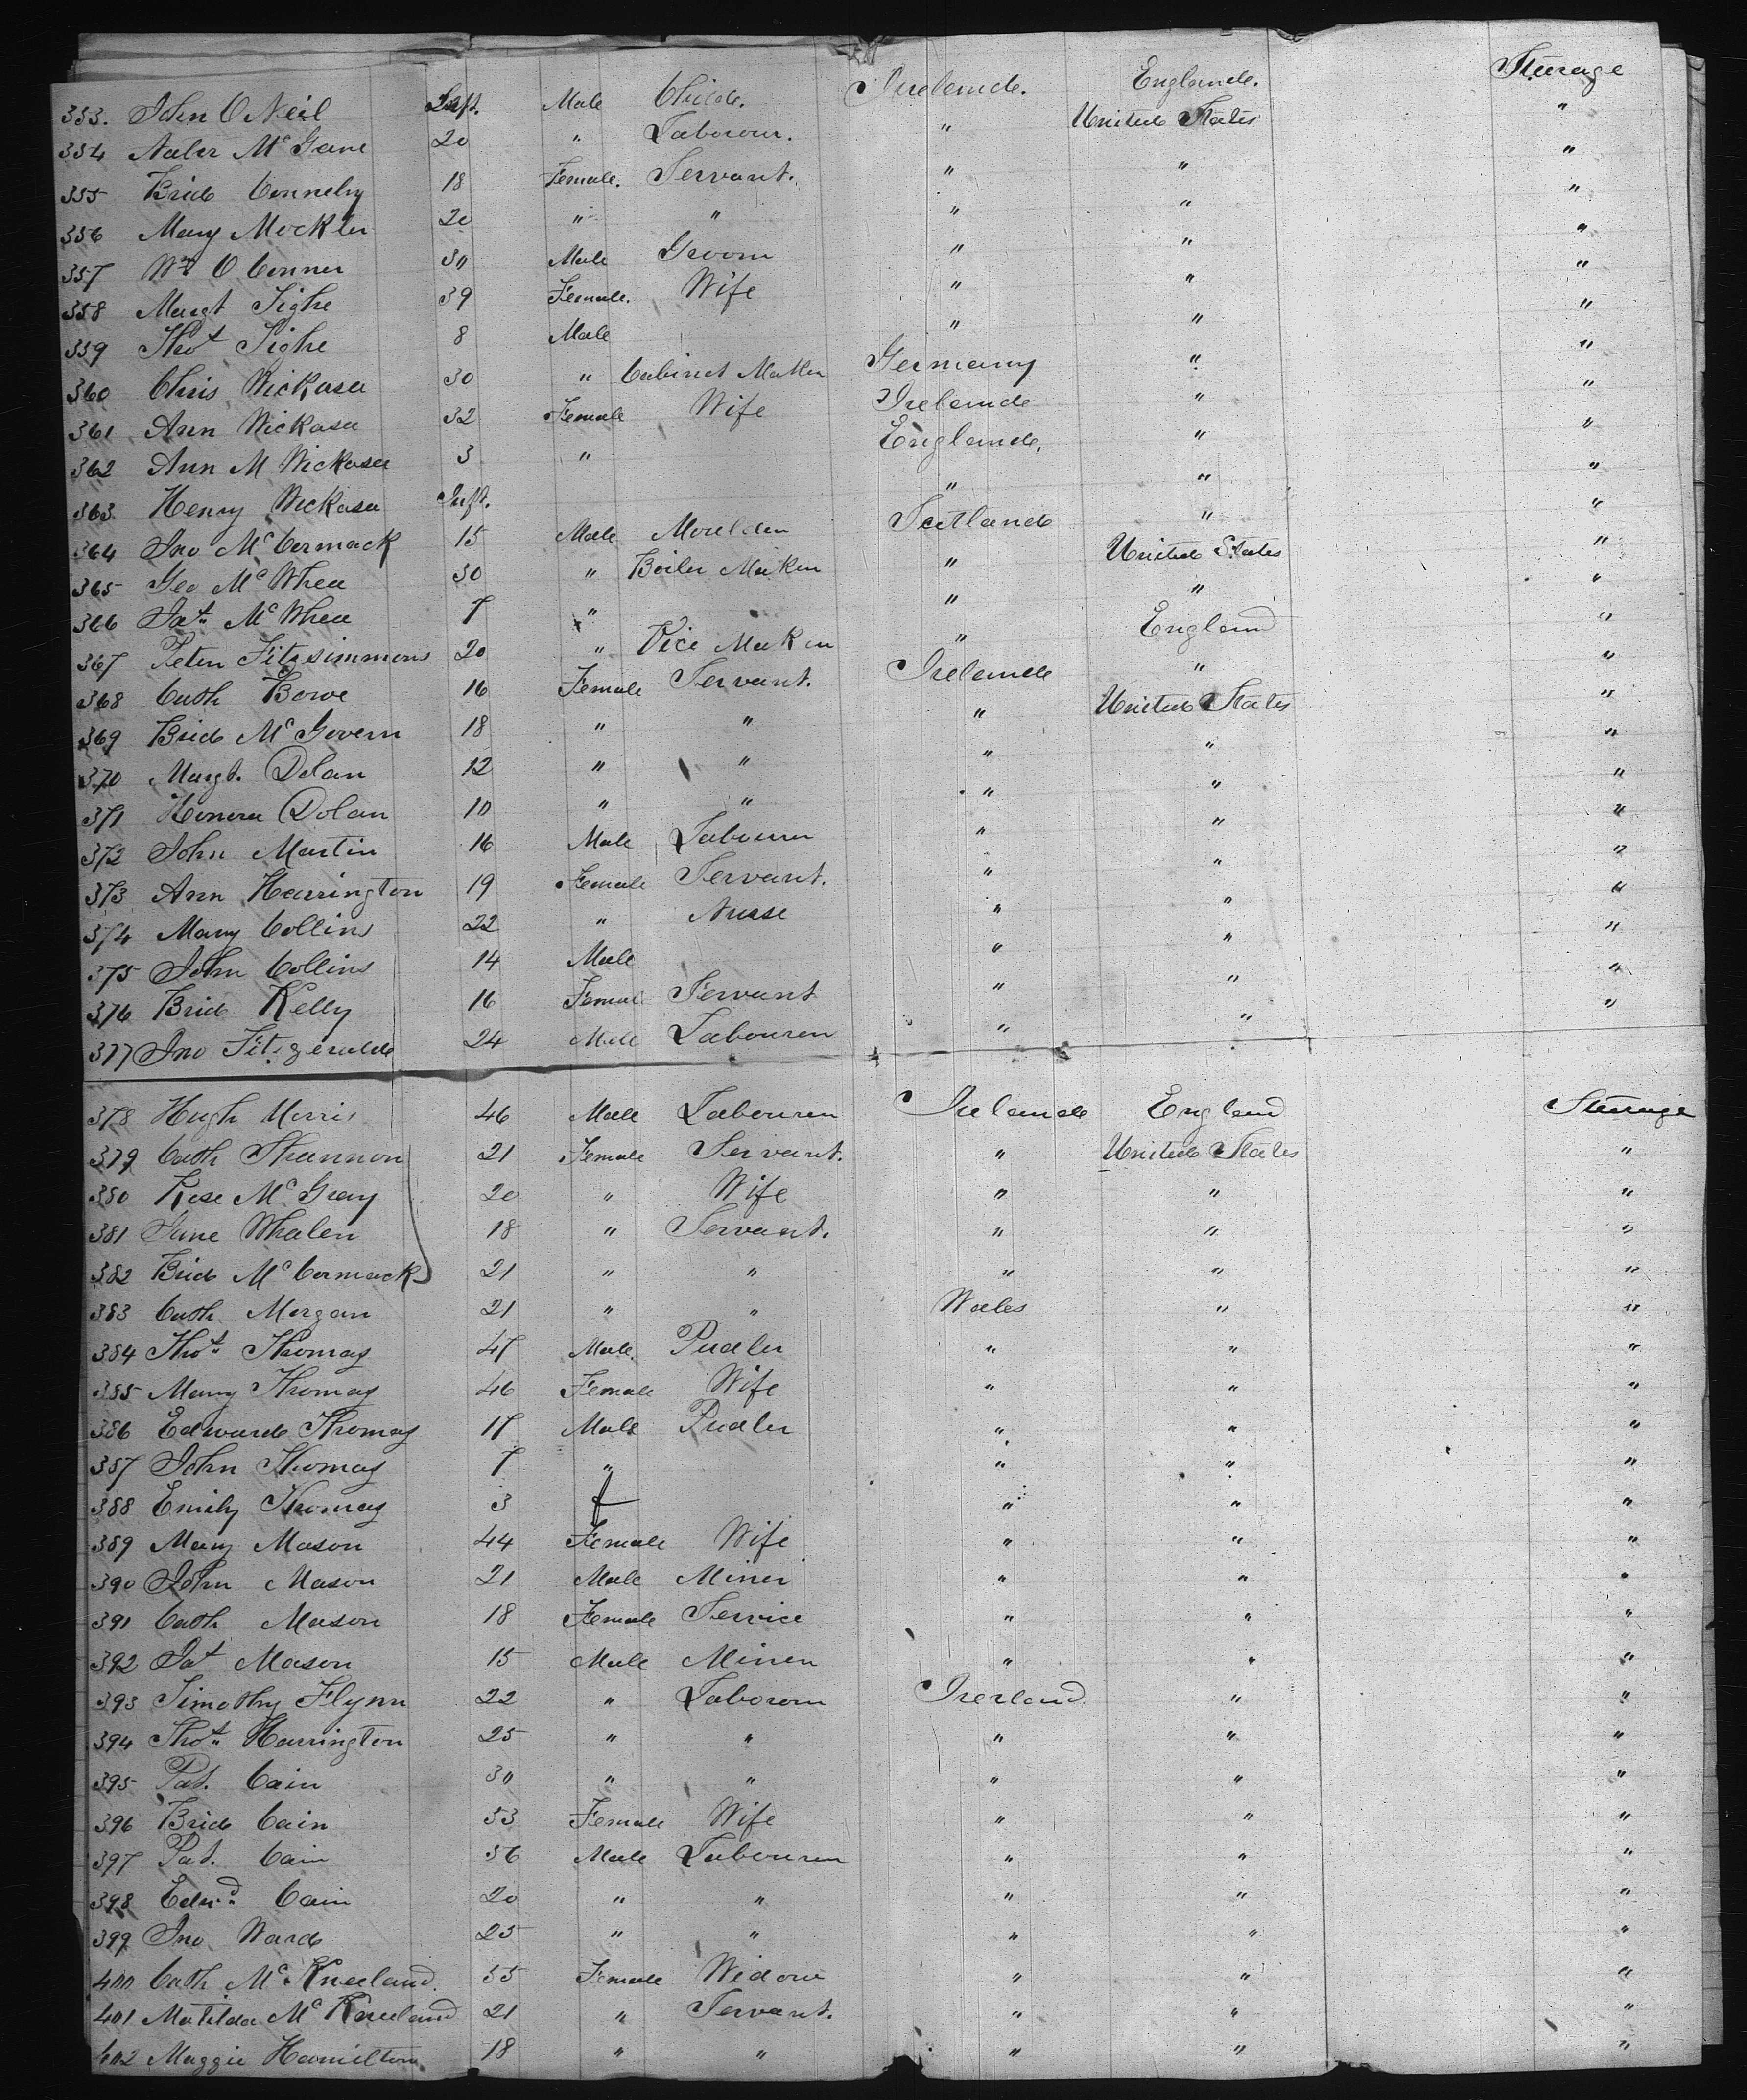 353. John O Neil Inft. Male Childe. Irelande. Englande. Steerage
354 McGane 20 " Labourer. " United States "
355 Brid Connelly 18 Female. Servant. " " "
356 Mary Mockler 20 " " " " "
357 Wm O Conner 30 Male Groom " " "
358 Margt Tighe 39 Female. Wife " " "
359 Thos Tighe 8 Male " " "
360 Chris Wickasa 30 " Cabinet Maker Germany " "
361 Ann Wickasa 32 Female Wife Irelande " "
362 Ann M Wickasa 3 " Englande. " "
363 Henry Wickasa Inft. " " "
364 Jno McCormack 15 Male Moulder Scotlande " "
365 Geo McWhea 30 " Boiler Maker " United States "
366 Jas McWhea 7 " " " "
367 Peter Fitzsimmons 20 " Vice Maker " England "
368 Cath Bowe 16 Female Servant. Irelande " "
369 Brid McGovern 18 " " " United States "
370 Margt. Dolan 12 " " " " "
371 Honora Dolan 10 " " " " "
372 John Martin 16 Male Labourer " " "
373 Ann Harrington 19 Female Servant. " " "
374 Mary Collins 22 " Nurse " " "
375 John Collins 14 Male " " "
376 Brid Kelly 16 Femal Servant " " "
377 Jno Fitzgeralde 24 Male Labourer " " "
378 Hugh Morris 46 Male Labourer Irelande England Steerage
379 Cath Shannon 21 Female Servant. " United States "
380 Rose McGray 20 " Wife " " "
381 Jane Whalen 18 " Servant. " " "
382 Brid McCormack 21 " " " " "
383 Cath Morgan 21 " " Wales " "
384 Thos Thomas 47 Male. Pudler " " "
385 Mary Thomas 46 Female Wife " " "
386 Edwarde Thomas 17 Male Pudler " " "
387 John Thomas 7 " " " "
388 Emily Thomas 3 f " " "
389 Mary Mason 44 Female Wife " " "
390 John Mason 21 Male Miner " " "
391 Cath Mason 18 Female Service " " "
392 Jas Mason 15 Male Miner " " "
393 Timothy Flynn 22 " Laborer Irerland " "
394 Thos Harrington 25 " " " " "
395 Pat. Cain 30 " " " " "
396 Brid Cain 53 Female Wife " " "
397 Pat. Cain 56 Male Labourer " " "
398 Edwd Cain 20 " " " " "
399 Jno Ward 25 " " " " "
400 Cath McKneeland 55 Female Widow " " "
401 Matilda McKneeland 21 " Servant. " " "
402 Maggie Hamilton 18 " " " " "